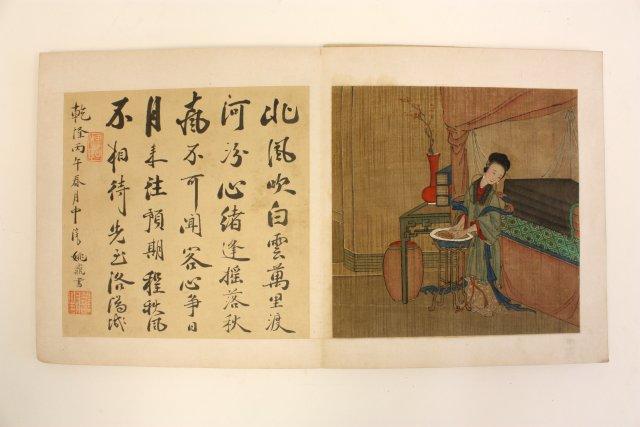 北風吹白雲萬里渡
河汾心緒逢摇落秋
聲不可聞客心爭日
月来往預期程秋風
不相待先至洛陽城
乾隆丙午春月中澣姚鼐書